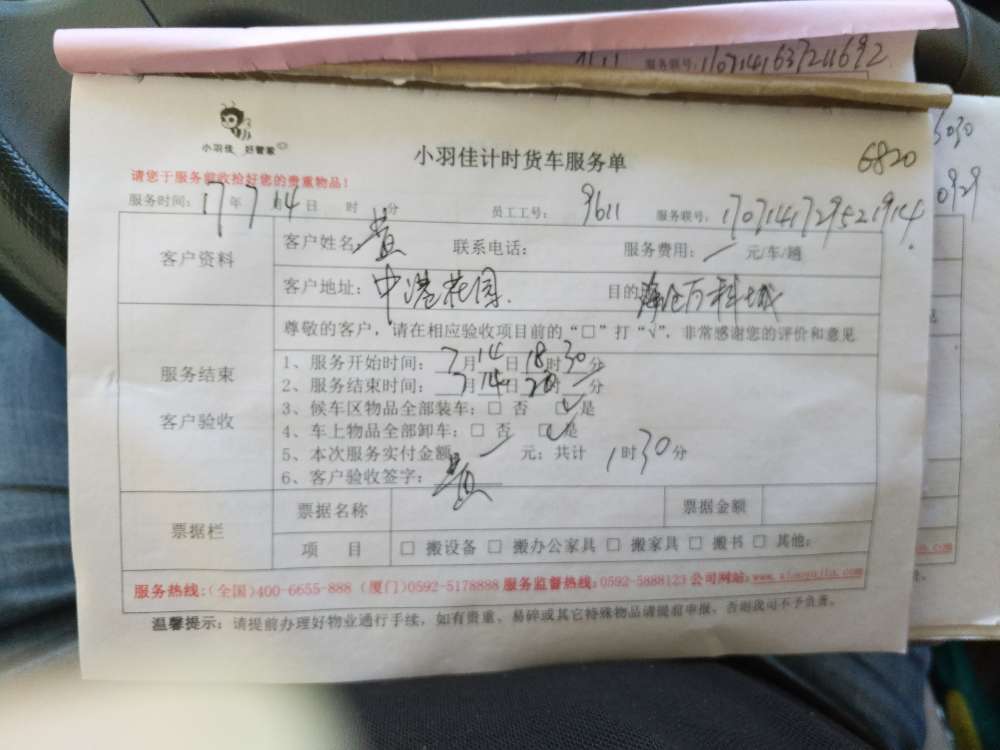 9611 服务联号: 170714163721692
小羽佳 好管家
小羽佳计时货车服务单
6820
请您于服务前收拾好您的贵重物品！
服务时间: 17年7月14日 时 分 员工工号: 9611 服务联号: 1707141729521914
客户资料
客户姓名: 黄 联系电话: 服务费用: 元/车/趟
客户地址: 中港花园. 目的 海沧万科城
尊敬的客户，请在相应验收项目前的“□”打“√”，非常感谢您的评价和意见
服务结束
客户验收
1、服务开始时间: 7月14日18时30分
2、服务结束时间: 7月14日20时 分
3、候车区物品全部装车: □ 否 ☑ 是
4、车上物品全部卸车: □ 否 ☑ 是
5、本次服务实付金额 元; 共计 1时30分
6、客户验收签字: 黄
票据栏
票据名称 票据金额
项 目 □ 搬设备 □ 搬办公家具 □ 搬家具 □ 搬书 □ 其他:
服务热线:(全国)400-6655-888 (厦门)0592-5178888 服务监督热线:0592-5888123 公司网站: www.xiaoyujia.com
温馨提示: 请提前办理好物业通行手续，如有贵重、易碎或其它特殊物品请提前申报，否则我司不予负责。
5030
0929